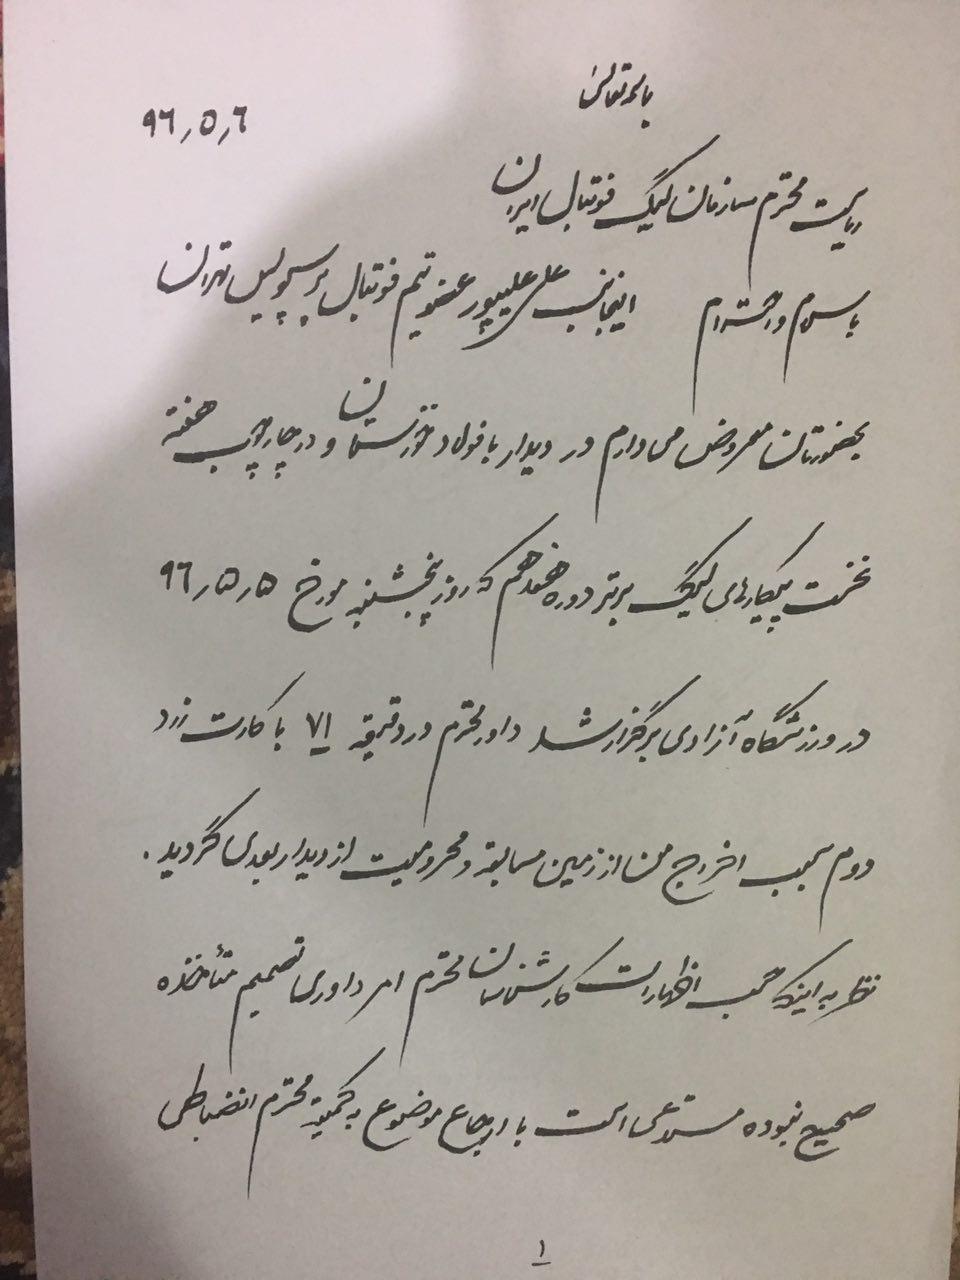 باسمه تعالی
۹۶٫۵٫۶
ریاست محترم سازمان لیگ فوتبال ایران
با سلام و احترام اینجانب علی علیپور عضو تیم فوتبال پرسپولیس تهران
بحضورتان معروض می دارم در دیدار با فولاد خوزستان و در چارچوب هفته
نخست پیکارهای لیگ برتر دوره هفدهم که روز پنجشنبه مورخ ۹۶٫۵٫۵
در ورزشگاه آزادی برگزار شد داور محترم در دقیقه ۷۱ با کارت زرد
دوم سبب اخراج من از زمین مسابقه و محرومیت از دیدار بعدی گردید.
نظر به اینکه حسب اظهارات کارشناسان محترم امر داوری تصمیم متأخذه
صحیح نبوده مستدعی است با ارجاع موضوع به کمیته محترم انضباطی
۱